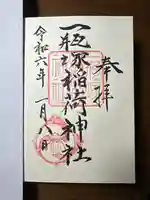 奉拝
一瓶塚稲荷神社
令和六年 一月八日